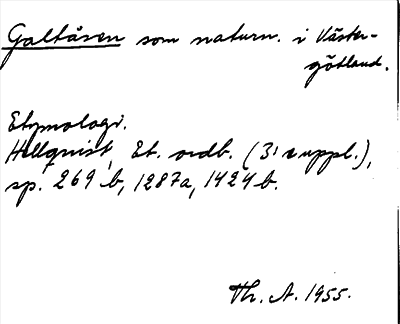 Galtåsen som naturn. i Väster-
götland.
Etymologi.
Hellquist, Et. ordb. (3: suppl.),
sp. 269 b, 1287a, 1424 b.
Th. A. 1955.